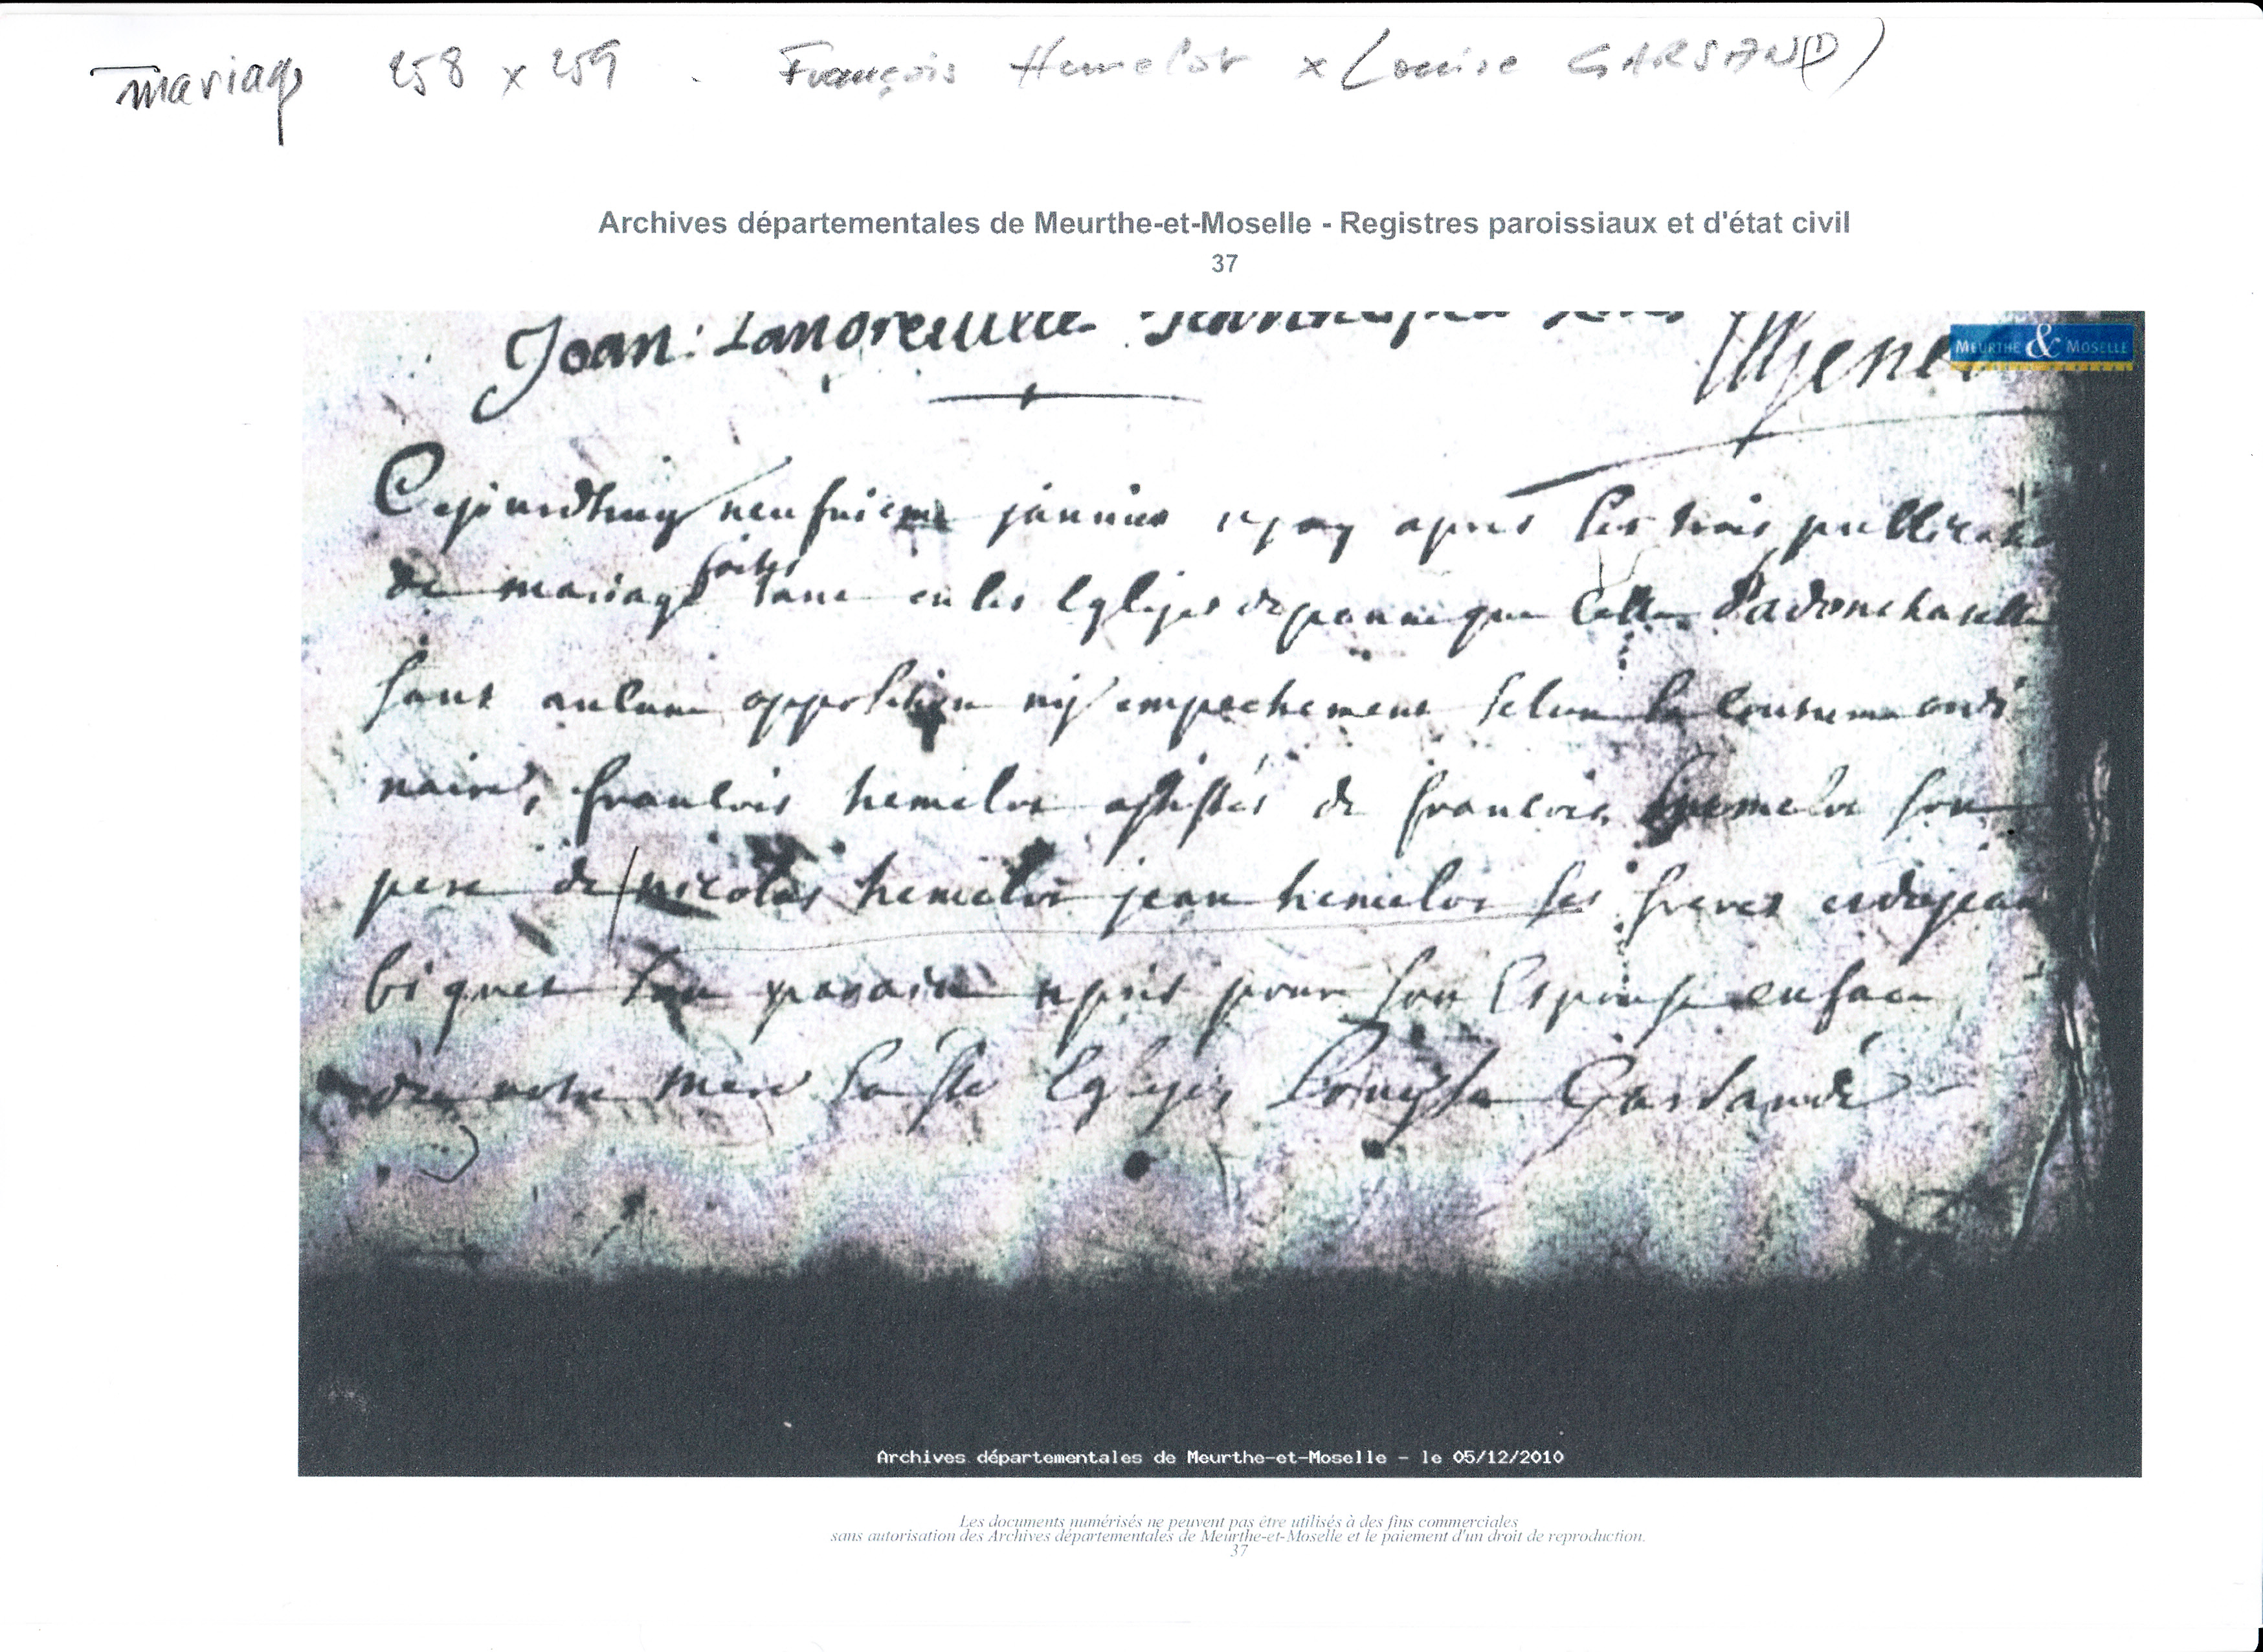 mariage 258 x 259 . François Humelot x (Louise GARSAN(D)
Archives départementales de Meurthe-et-Moselle - Registres paroissiaux et d'état civil
37
Joan: Landreville
MEURTHE & MOSELLE
Cejourdhuy neufuieme januier apres les trois publicaōn
de mariage faites tant en les Eglises de que Celle d'adomchaselle
sans aulcune opposition nij empechement selon la coutume ordi
naire, francois hemelot assistés de francois hemelot son
pere de nicolas hemelot jean hemelot ses freres et de jean
biquet son parain a pris pour son Espouse en face
de notre mere Sa ste Eglyse, Louyse Garsandé
Archives départementales de Meurthe-et-Moselle - le 05/12/2010
Les documents numérisés ne peuvent pas être utilisés à des fins commerciales
sans autorisation des Archives départementales de Meurthe-et-Moselle et le paiement d'un droit de reproduction.
37